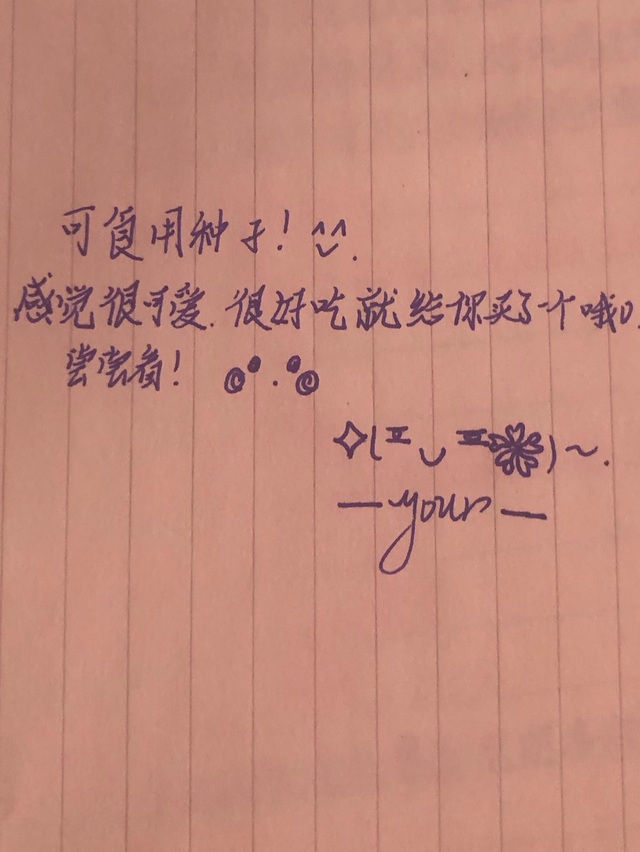 可食用种子! ^^
感觉很可爱.很好吃就给你买了一个哦
尝尝看!
—your—